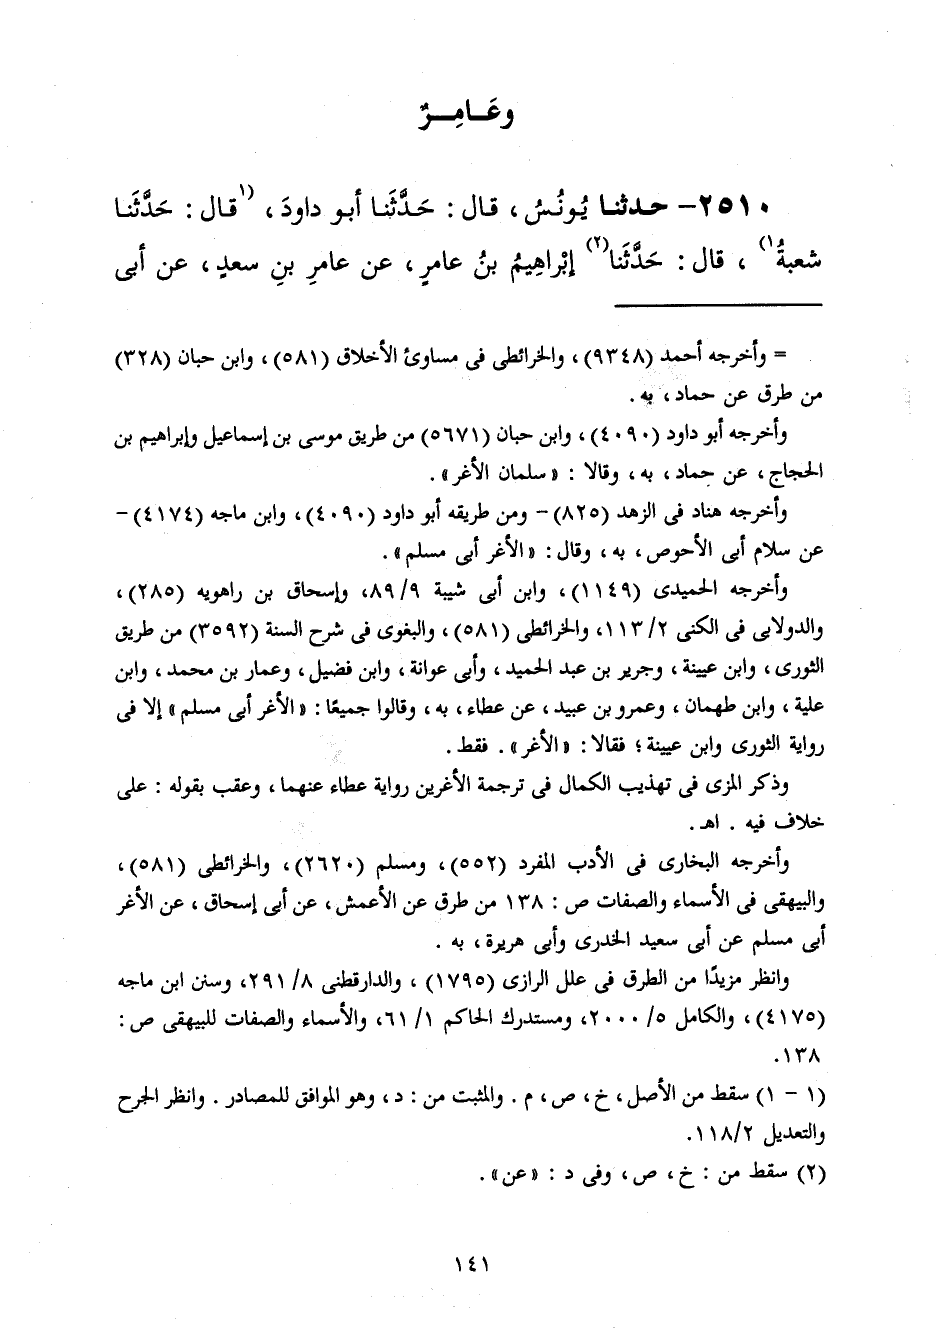 وعَـامِـرٌ
٢٥١٠- حدثنا يُونُسُ، قال: حَدَّثَنا أبو داودَ، (١قال: حَدَّثَنا
شعبةُ١)، قال: حَدَّثَنا(٢) إبْراهِيمُ بنُ عامرٍ، عن عامرِ بنِ سعدٍ، عن أبى
= وأخرجه أحمد (٩٣٤٨)، والخرائطى فى مساوئ الأخلاق (٥٨١)، وابن حبان (٣٢٨)
من طرق عن حماد، به.
وأخرجه أبو داود (٤٠٩٠)، وابن حبان (٥٦٧١) من طريق موسى بن إسماعيل وإبراهيم بن
الحجاج، عن حماد، به، وقالا: «سلمان الأغر».
وأخرجه هناد فى الزهد (٨٢٥)- ومن طريقه أبو داود (٤٠٩٠)، وابن ماجه (٤١٧٤)-
عن سلام أبى الأحوص، به، وقال: «الأغر أبى مسلم».
وأخرجه الحميدى (١١٤٩)، وابن أبى شيبة ٨٩/٩، وإسحاق بن راهويه (٢٨٥)،
والدولابى فى الكنى ١١٣/٢، والخرائطى (٥٨١)، والبغوى فى شرح السنة (٣٥٩٢) من طريق
الثورى، وابن عيينة، وجرير بن عبد الحميد، وأبى عوانة، وابن فضيل، وعمار بن محمد، وابن
علية، وابن طهمان، وعمرو بن عبيد، عن عطاء، به، وقالوا جميعًا: «الأغر أبى مسلم» إلا فى
رواية الثورى وابن عيينة؛ فقالا: «الأغر». فقط.
وذكر المزى فى تهذيب الكمال فى ترجمة الأغرين رواية عطاء عنهما، وعقب بقوله: على
خلاف فيه. اهـ.
وأخرجه البخارى فى الأدب المفرد (٥٥٢)، ومسلم (٢٦٢٠)، والخرائطى (٥٨١)،
والبيهقى فى الأسماء والصفات ص: ١٣٨ من طرق عن الأعمش، عن أبى إسحاق، عن الأغر
أبى مسلم عن أبى سعيد الخدرى وأبى هريرة، به.
وانظر مزيدًا من الطرق فى علل الرازى (١٧٩٥)، والدارقطنى ٢٩١/٨، وسنن ابن ماجه
(٤١٧٥)، والكامل ٢٠٠٠/٥، ومستدرك الحاكم ٦١/١، والأسماء والصفات للبيهقى ص:
١٣٨.
(١ - ١) سقط من الأصل، خ، ص، م. والمثبت من: د، وهو الموافق للمصادر. وانظر الجرح
والتعديل ١١٨/٢.
(٢) سقط من: خ، ص، وفى د: «عن».
١٤١